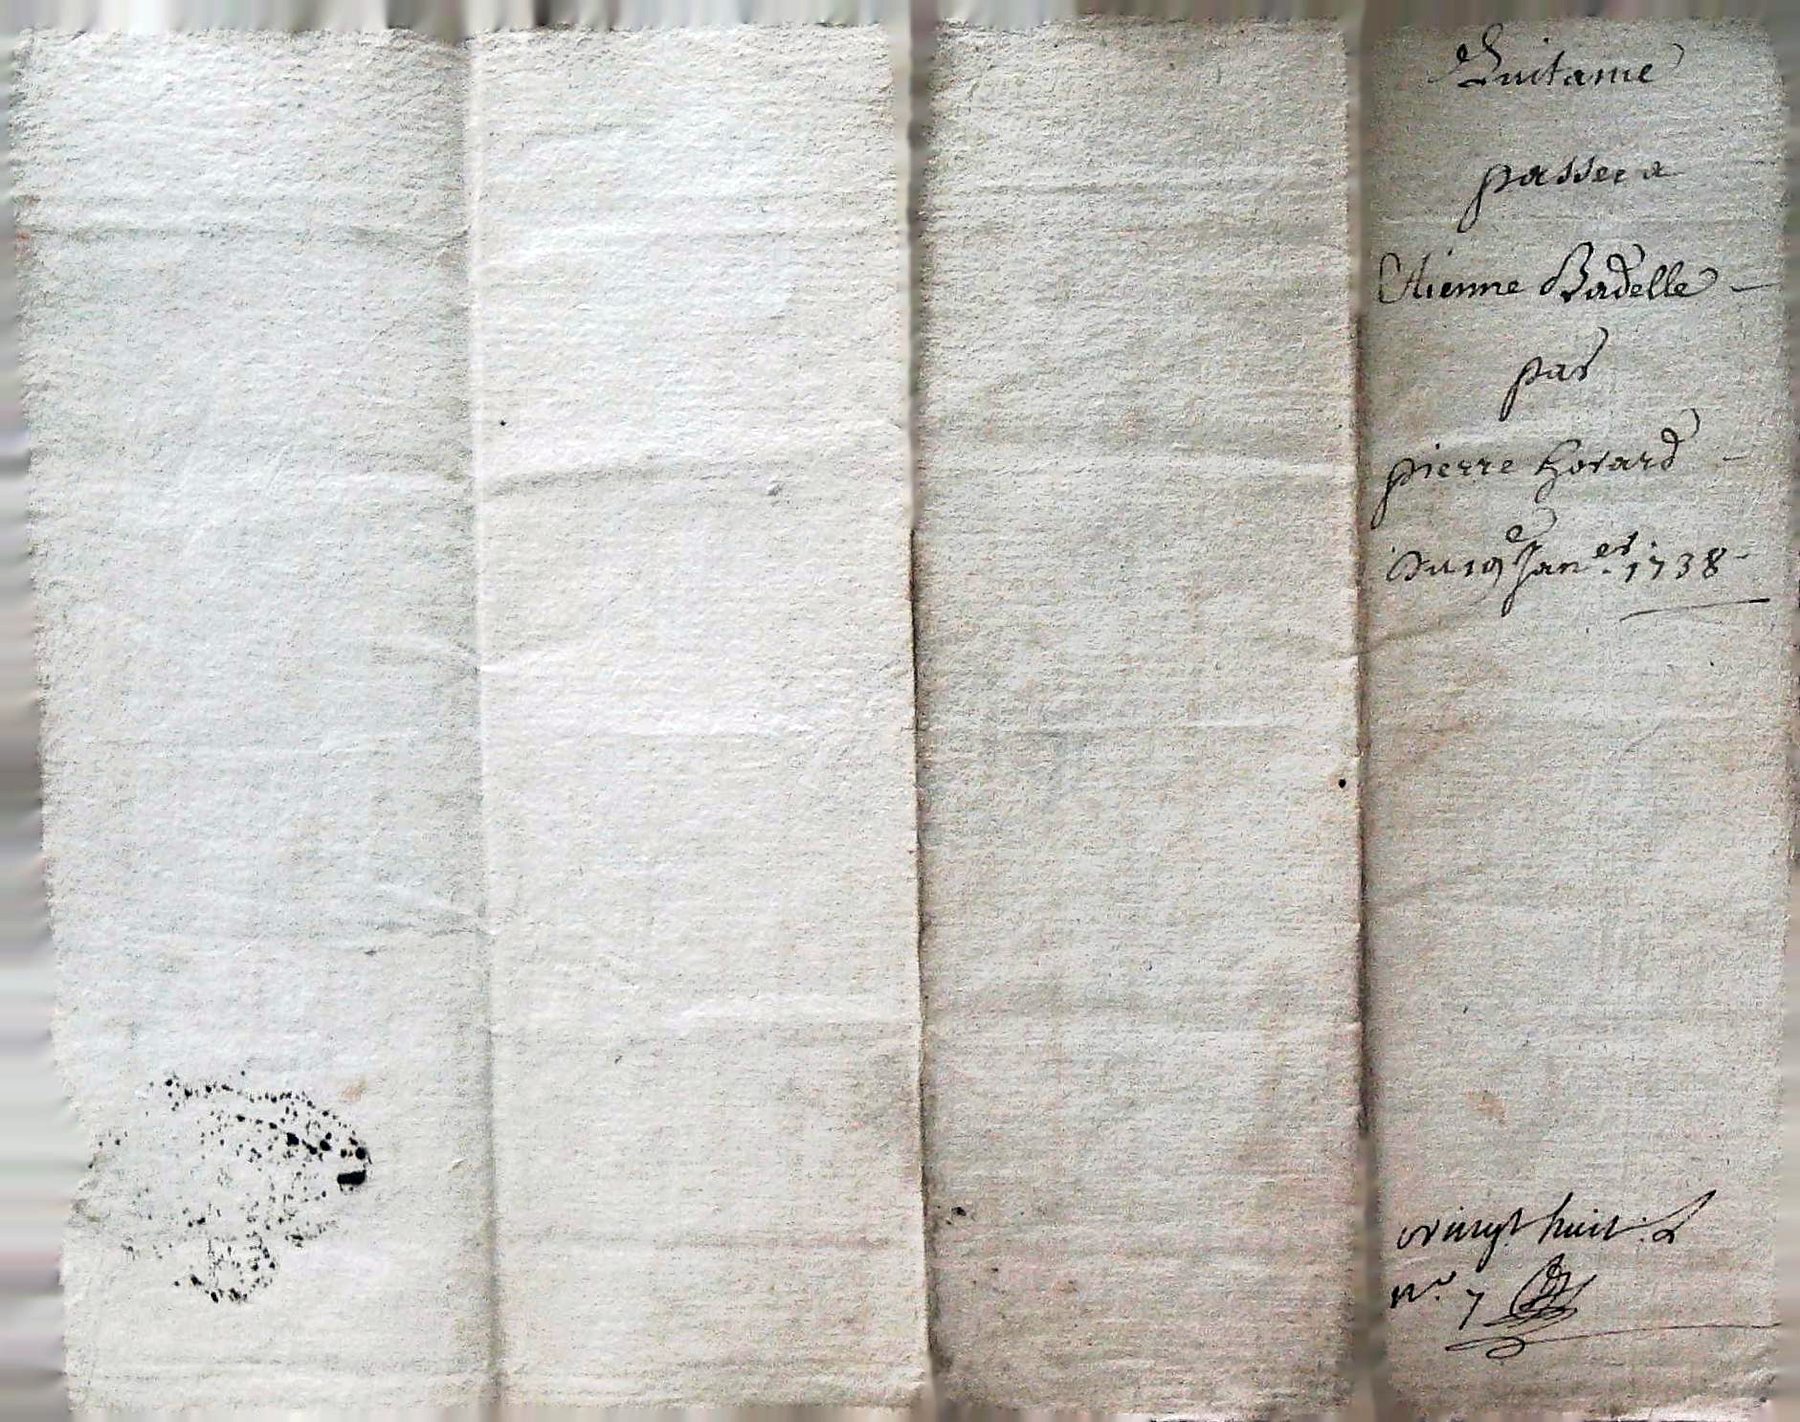 Quitance
passee a
Etienne Badelle
par
pierre horard
Du 19e Janer. 1738
vingt huit.
No. 7